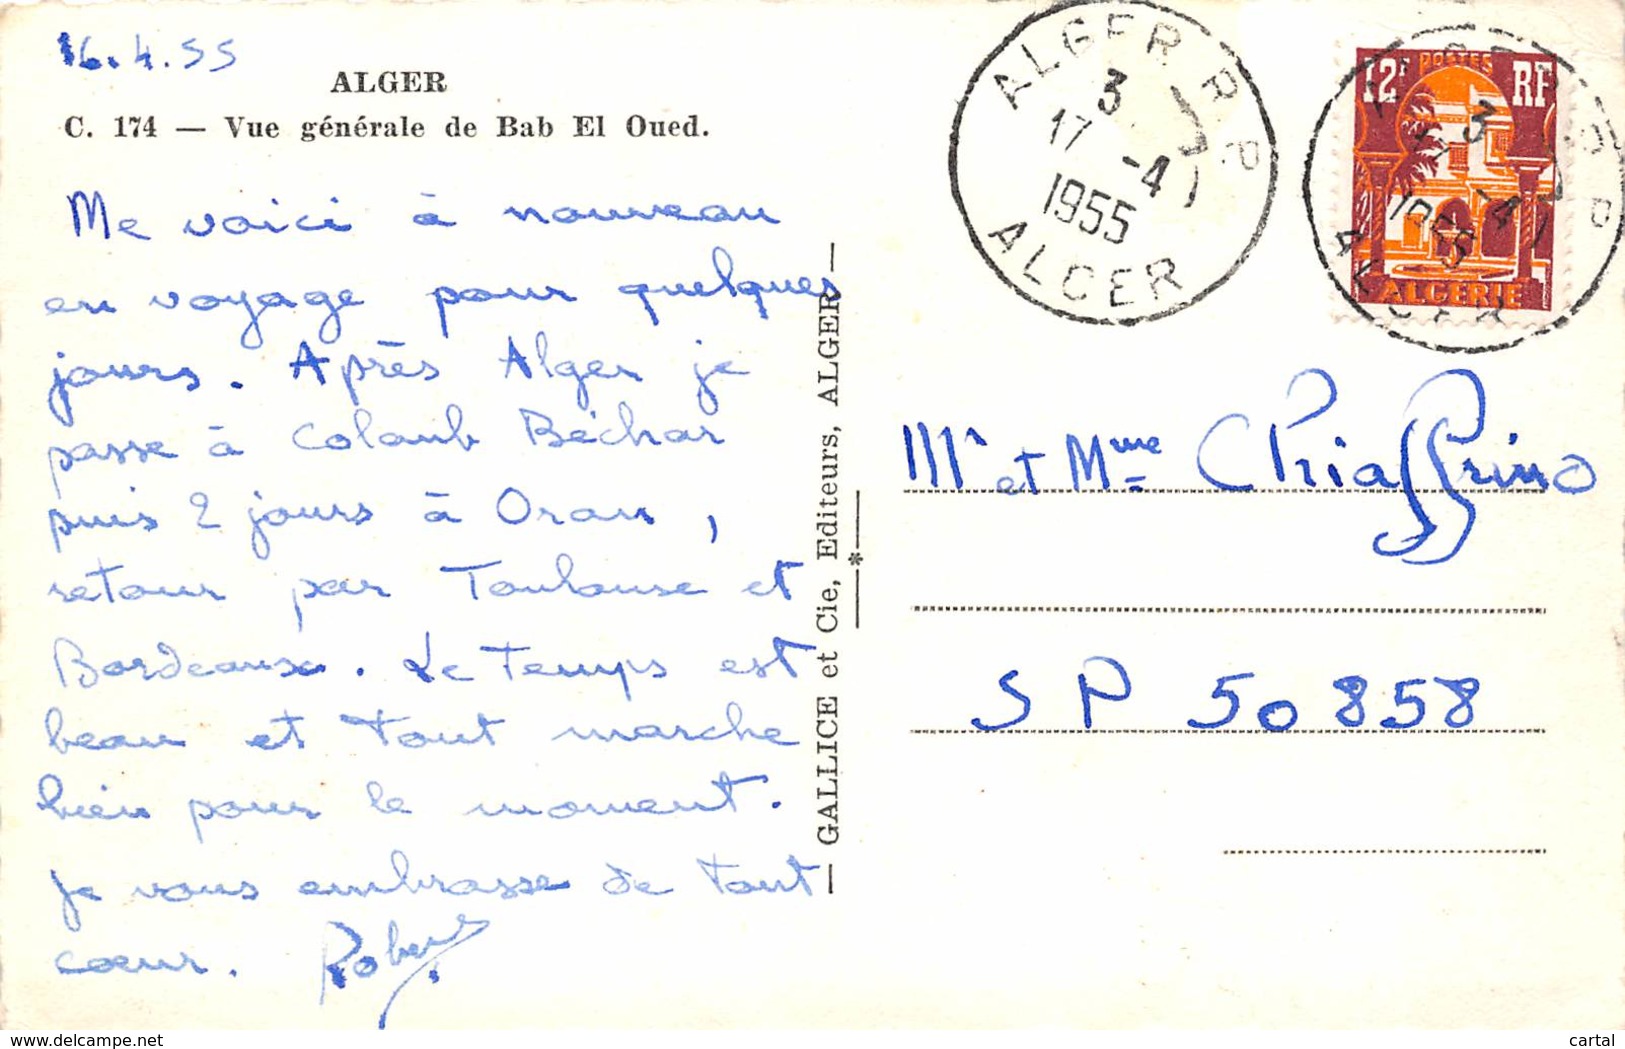 16.4.55
ALGER
C. 174 — Vue générale de Bab El Oued.
Me voici à nouveau
en voyage pour quelques
jours. Après Alger je
passe à Colomb Béchar
puis 2 jours à Oran,
retour par Toulouse et
Bordeaux. Le temps est
beau et tout marche
bien pour le moment.
Je vous embrasse de tout
cœur. Robert
GALLICE et Cie, Editeurs, ALGER
*
ALGER R P
3
17 -4
1955
ALGER
12F POSTES RF
ALGERIE
ALGER R P
3
17 -4
1955
ALGER
Mr et Mme Chiaffrino
SP 50858
www.delcampe.net
cartal